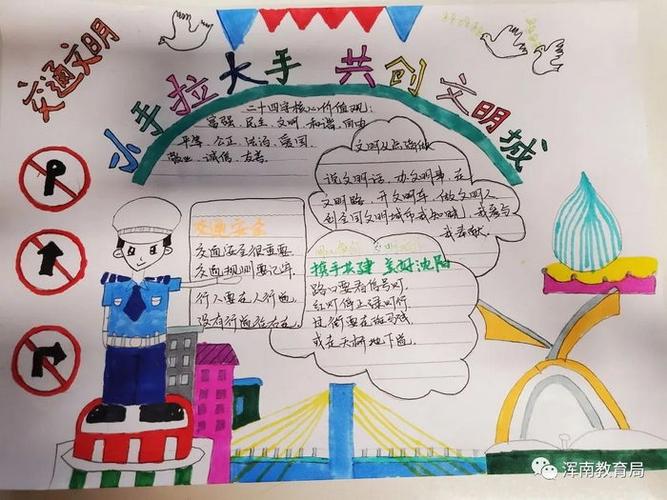 交通文明
小手拉大手 共创文明城
二十四字核心价值观:
富强、民主、文明、和谐、自由、
平等、公正、法治、爱国、
敬业、诚信、友善。
说文明话,办文明事,走
文明路,开文明车,做文明人
创全国文明城市我知晓,我参与
我奉献。
交通安全
交通安全很重要
交通规则要记牢
行人要走人行道
没有行道往右走。
携手共建 美好沈阳
路口要看信号灯,
红灯停止绿灯行
过街要走斑马线
或走天桥地下道。
P
浑南教育局